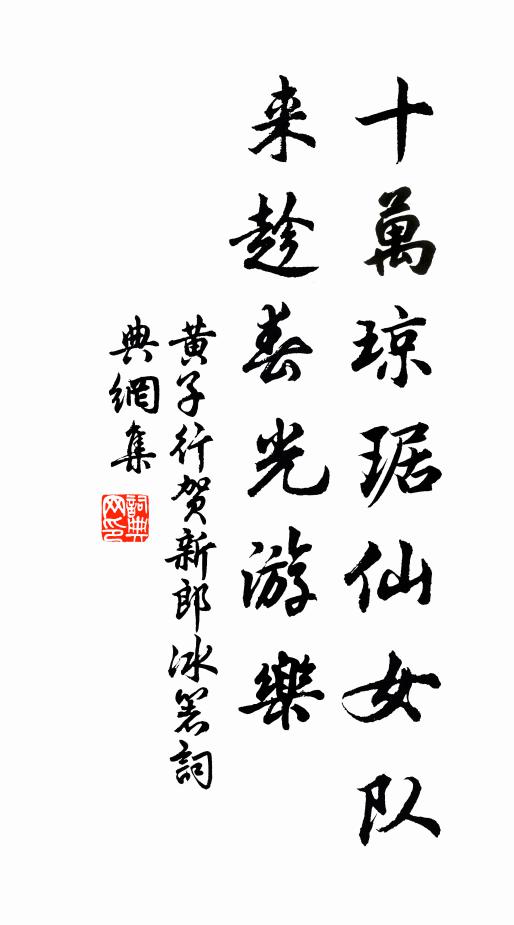 十萬琼琚仙女队
来趁春光游樂
黄子行贺新郎冰箸詞
典網集
詞典网印